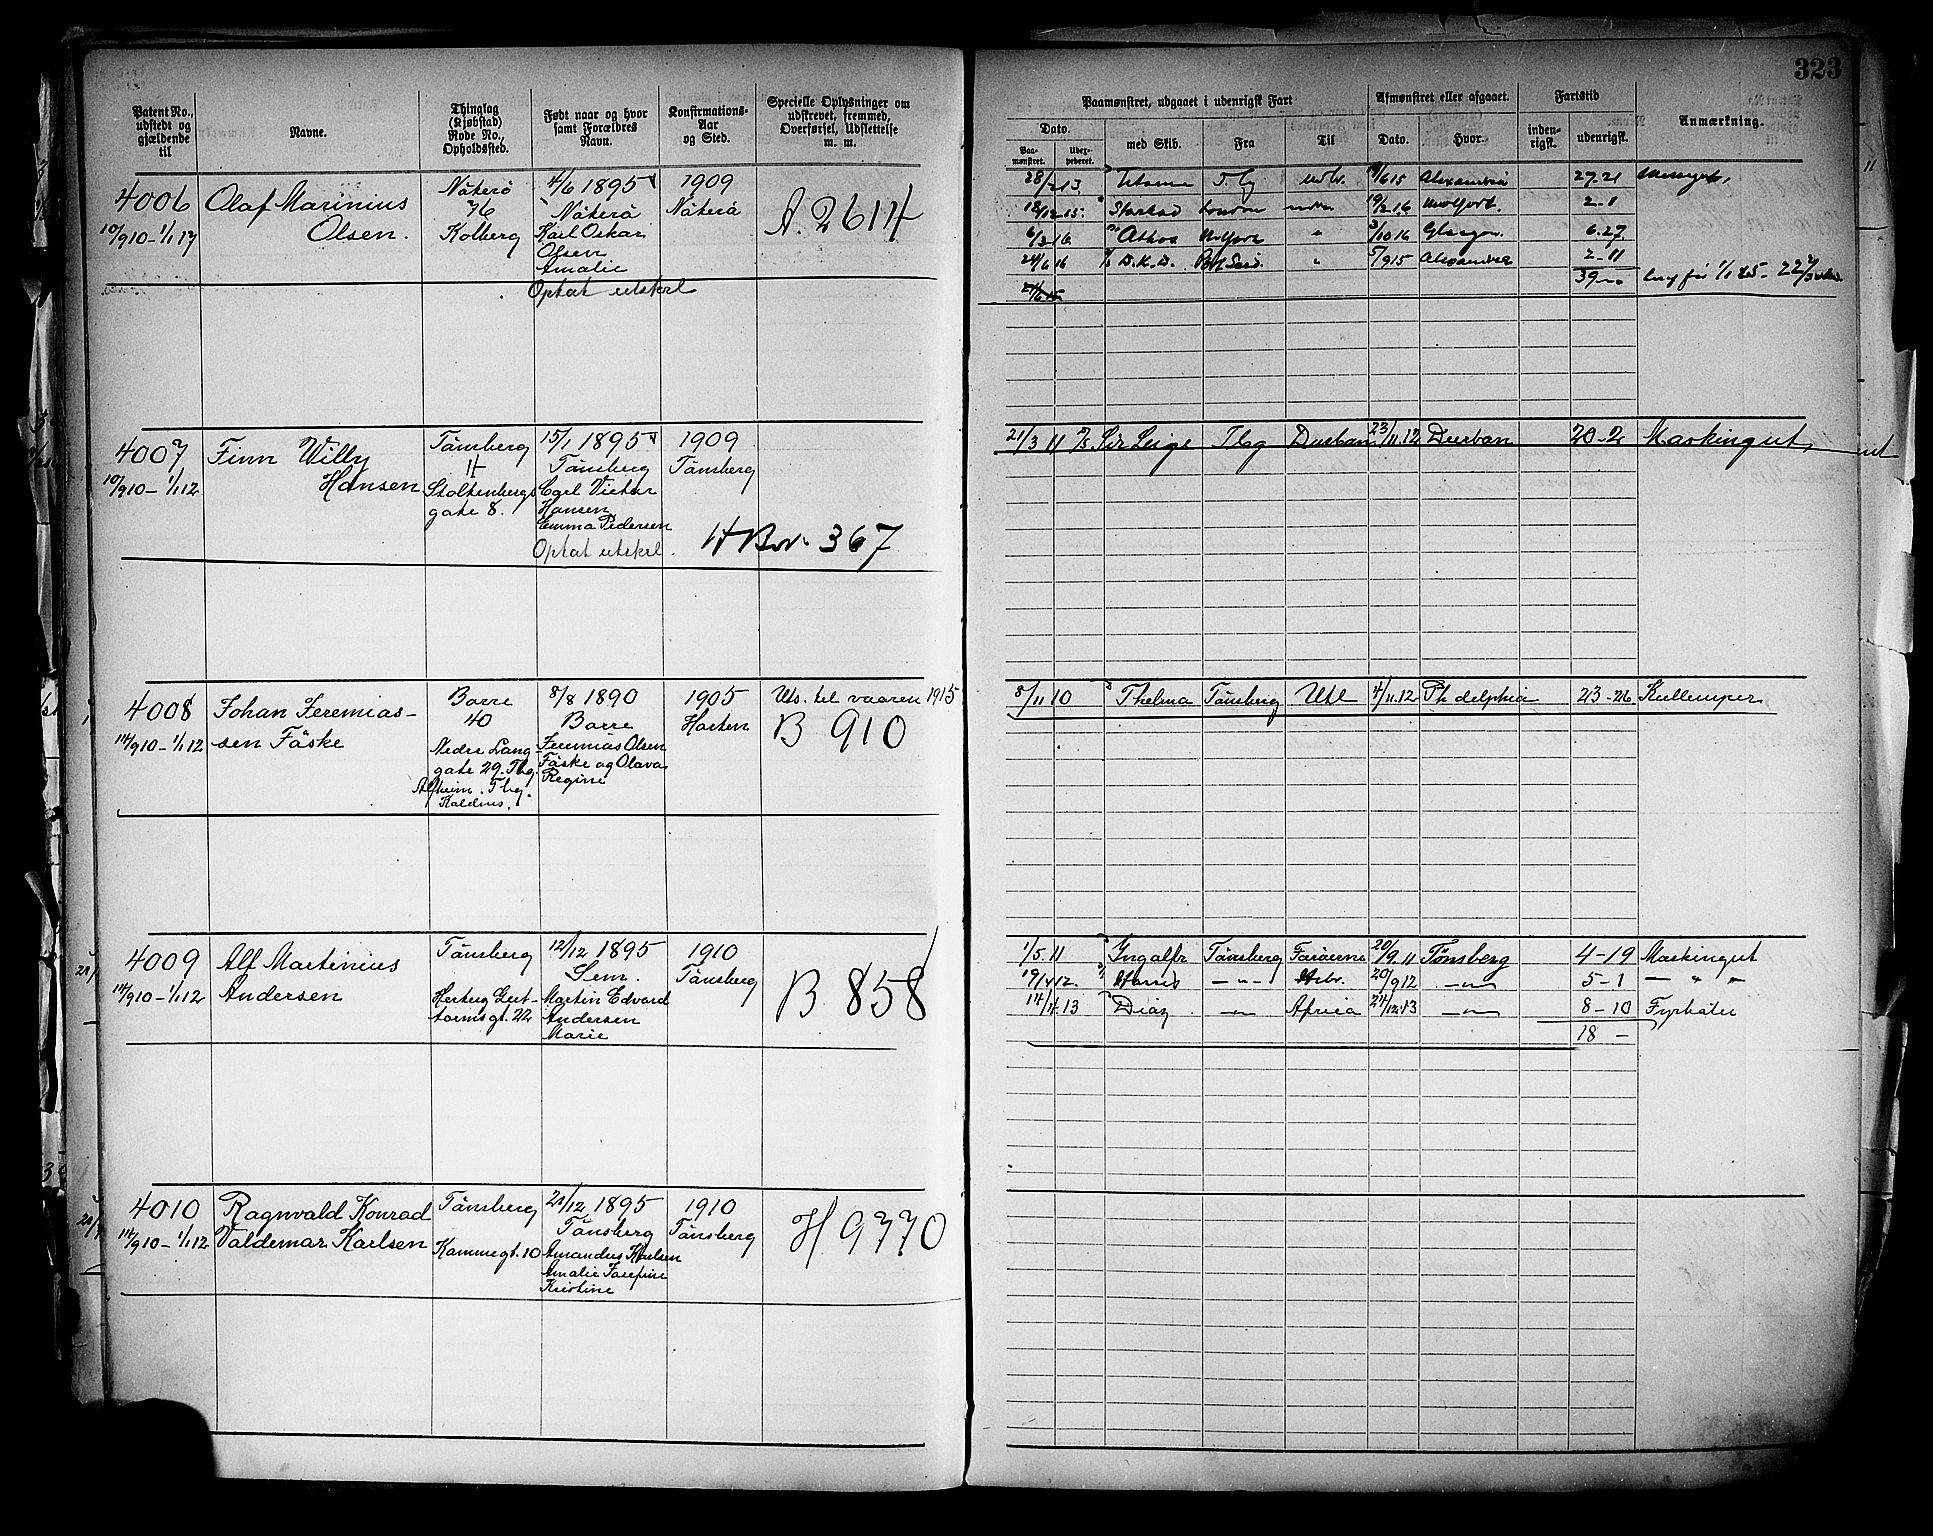 323
Patent No., udstedt og gjældende til
Navne.
Thinglag (Kjøbstad) Rode No., Opholdssted.
Født naar og hvor samt Forældres Navn.
Konfirmations- Aar og Sted.
Specielle Oplysninger om udskrevet, fremmed, Overførsel, Udslettelse m. m.
Paamønstret, udgaaet i udenrigsk Fart
Dato.
Paa-mønstret.
med Skib.
Fra
Til
Afmønstret eller afgaaet.
Dato.
Hvor.
Fartstid
inden-rigsk.
udenrigsk.
Anmærkning.
4006
10/9 10 - 1/1 17
Olaf Marinius
Olsen.
Nøterø
76
Kolberg
4/6 1895
Nøterø
Karl Oskar
Olsen
Amalie
Optat utskrl
1909
Nøterø
A. 2614
28/2 13. T.bg udv. 15 Alexandria 27-21
18/12 15. London 19/2 16 2-1
6/3 16 Athos 3/10 16 6.27
24/6 16 D.K.D. 5/9 15 Alexandria 2-11
39-
4007
10/9 10 - 1/1 12
Finn Willy
Hansen
Tønsberg
4
Stoltenbergs
gate 8.
15/1 1895
Tønsberg
Carl Victor
Hansen
Emma Pedersen
Optat utskrl.
1909
Tønsberg
H Bov. 367
21/3 11 Tbg Durban 23/11 12 Durban 20-2 Maskingut
4008
14/9 10 - 1/1 12
Johan Jeremias-
sen Fåske
Borre
40
Nedre Lang-
gate 29. Tbg.
Alfheim. Tbg.
Kaldnes.
8/8 1890
Borre
Jeremias Olsen
Fåske og Olava
Regine
1905
Horten
Uts. til vaaren 1915
B 910
8/11 10 Thelma Tønsberg Utl 4/11 12 Ph delphia 23-26 Kullemper
4009
14/9 10 - 1/1 12
Alf Martinius
Andersen
Tønsberg
12/12 1895
Sem.
Martin Edvard
Andersen
Marie
1910
Tønsberg
B 858
1/5 11 Ingolfr Tønsberg Færøerne 20/9 11 Tønsberg 4-19 Maskingut
19/4 12. -"- 20/9 12 -"- 5-1 - " -
14/4 13 Diaz -"- Africa 24/12 13 -"- 8-10 Fyrbøter
18 -
4010
14/9 10 - 1/1 12
Ragnvald Konrad
Valdemar Karlsen
Tønsberg
Kammegt. 10
21/12 1895
Tønsberg
Amandus Karlsen
Amalie Josefine
Kristine
1910
Tønsberg
H 9770